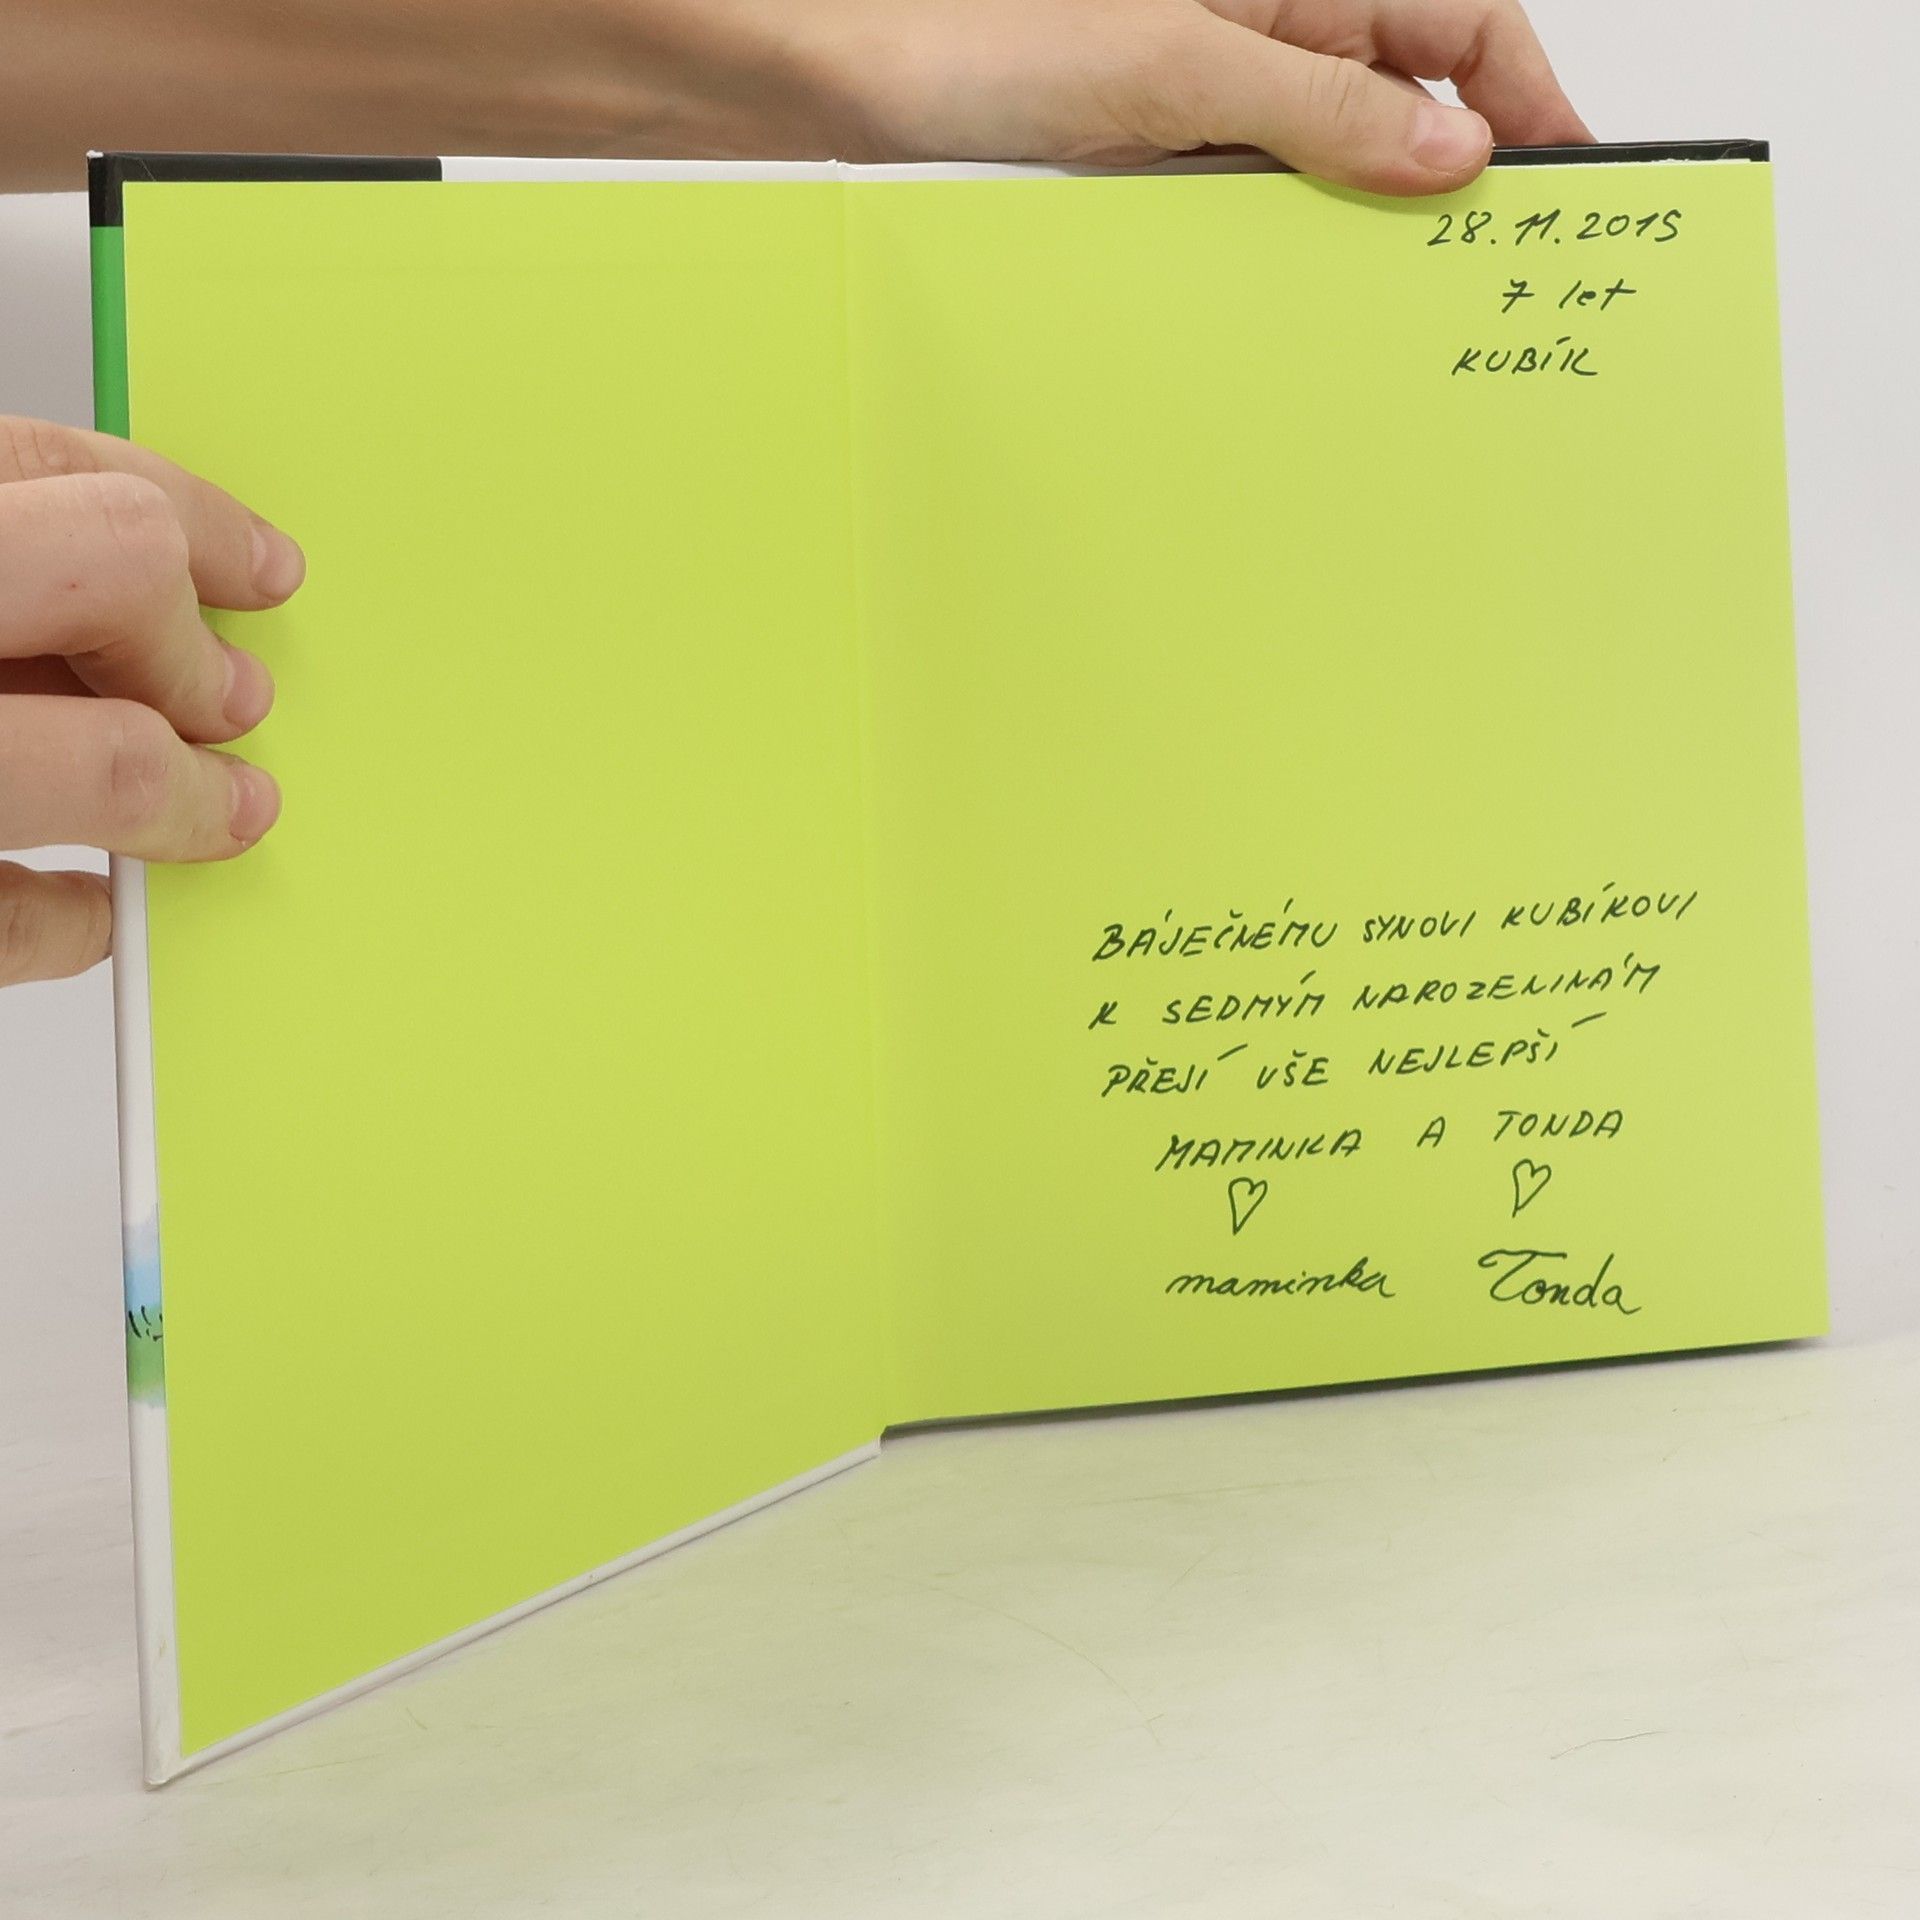 28. 11. 2015
7 let
KUBÍK
BÁJEČNÉMU SYNOVI KUBÍKOVI
K SEDMÝM NAROZENINÁM
PŘEJÍ VŠE NEJLEPŠÍ
MAMINKA A TONDA
♡ ♡
maminka Tonda